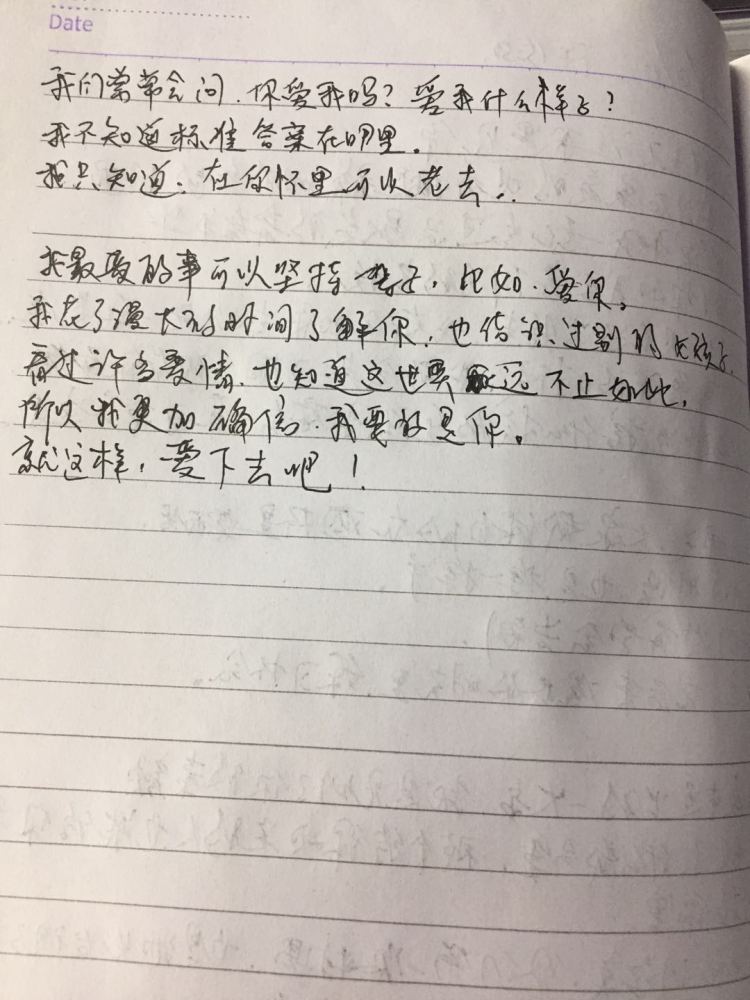 Date
我们常常会问，你爱我吗？爱我什么样子？
我不知道标准答案在哪里。
我只知道，在你怀里可以老去..
我最爱的事可以坚持一辈子，比如，爱你。
我花了漫长的时间了解你，也结识过别的女孩子，
看过许多爱情，也知道这世界永远不止如此，
所以我更加确信，我要的是你。
就这样，爱下去吧！